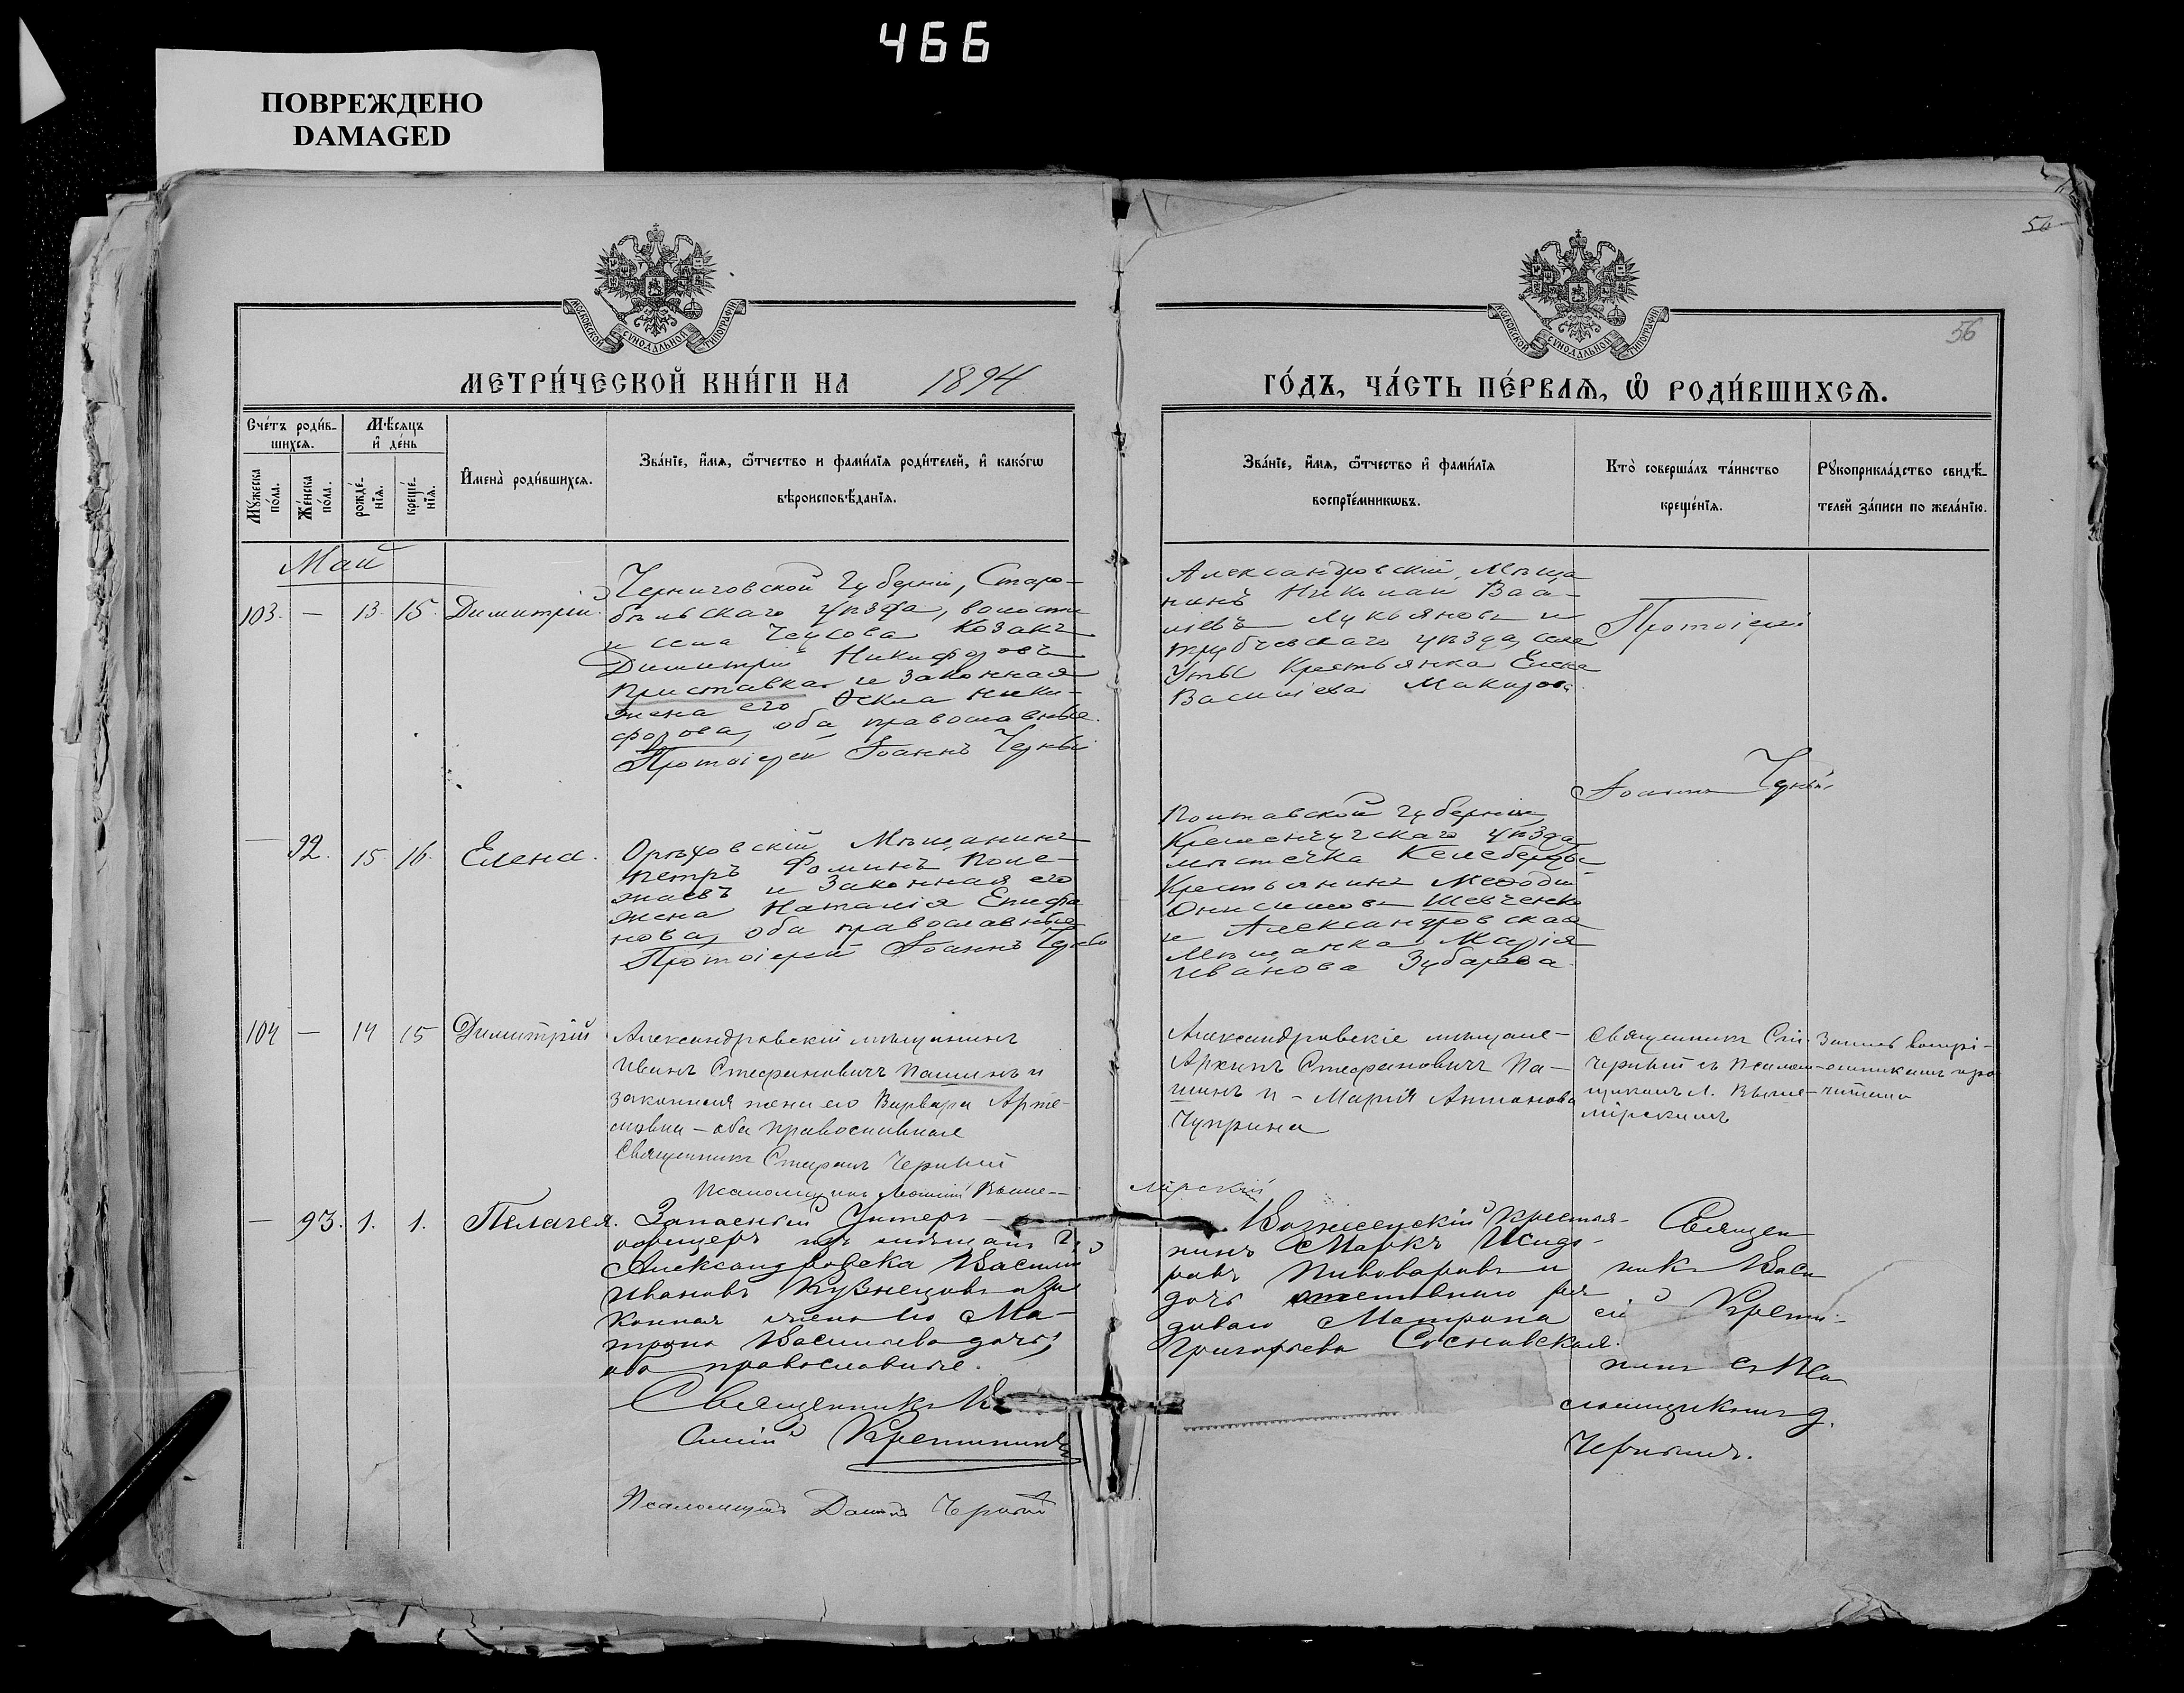 466
ПОВРЕЖДЕНО
DAMAGED
50
56
МОСКОВСКОЙ СѴНОДАЛЬНОЙ ТИПОГРАФІИ
МОСКОВСКОЙ СѴНОДАЛЬНОЙ ТИПОГРАФІИ
МЕТРИ́ЧЕСКОЙ КНИ́ГИ НА 1894
ГО́ДЪ, ЧА́СТЬ ПЕ́РВАЯ, Ѡ҆ РОДИ́ВШИХСЯ.
Сче́тъ роди́в-
шихся.
Мѣ́сяцъ
и҆ де́нь
Мꙋ́жеска
по́ла.
Же́нска
по́ла.
рожде́-
нїя.
креще́-
нїя.
И҆мена̀ роди́вшихся.
Зва́нїе, и҆́мя, ѻ҆́тчество и фами́лїя роди́телей, и҆ како́гѡ
вѣроисповѣ́данїя.
Зва́нїе, и҆́мя, ѻ҆́тчество и҆ фами́лїя
воспрїе́мникѡвъ.
Кто̀ соверша́лъ та́инство
креще́нїя.
Рꙋкоприкла́дство свидѣ́-
телей за́писи по жела́нїю.
Май
103. — 13. 15. Димитрій.
Черниговской губерніи, Старо-
бѣльскаго уѣзда, волости
и села Козакъ
Димитрій Никифоровъ
Приставка и законная
жена его Ники-
форова, оба православные.
Протоіерей Іоаннъ
Александровскій Мѣща
нинъ Николай Васи-
ліевъ Лукьяновъ и
трубчевскаго уѣзда, села
Уты Крестьянка Елена
Василіева Макарова.
Протоіерей
Іоаннъ
— 92. 15. 16. Елена.
Орѣховскій Мѣщанинъ
Петръ Фоминъ Поле-
жаевъ и Законная его
жена Наталія Епифа
нова, оба православные
Протоіерей Іоаннъ
Полтавской губерніи,
Кременчугскаго уѣзда
мѣстечка Келеберды
Крестьянинъ Меѳодій
Онисимовъ Шевченко
и Александровская
Мѣщанка Марія
Иванова Зубарева.
104 — 14 15 Димитрій
Александровскій мѣщанинъ
Иванъ Стефановичъ Пашинъ и
законная жена его Варвара Арте-
мовна – оба православные
Священникъ Стефанъ Черный
Псаломщикъ Выше-
мірскій
Александровскіе мѣщане –
Архипъ Стефановичъ Па-
шинъ и – Марія Антонова
Чуприна
Священникъ Сте.
Черный съ Псалом-
щикомъ Л. Выше-
мірскимъ
— 93. 1. 1. Пелагея.
Запасный Унтеръ –
офицеръ изъ мѣщанъ г.
Александровска Василій
Ивановъ Кузнецовъ и за
конная жена его Ма-
трона Васильева дочь,
оба православные.
Священникъ Ва
силій
Псаломщикъ Даніилъ Черный
Вознесенскій крестья-
нинъ Маркъ Исидо-
ровъ Пивоваровъ и
дочь ря
доваго Матрона
Григорьева Сосновская.
Священ
никъ Васи
лій
съ Пса
ломщикомъ Д.
Чернымъ.